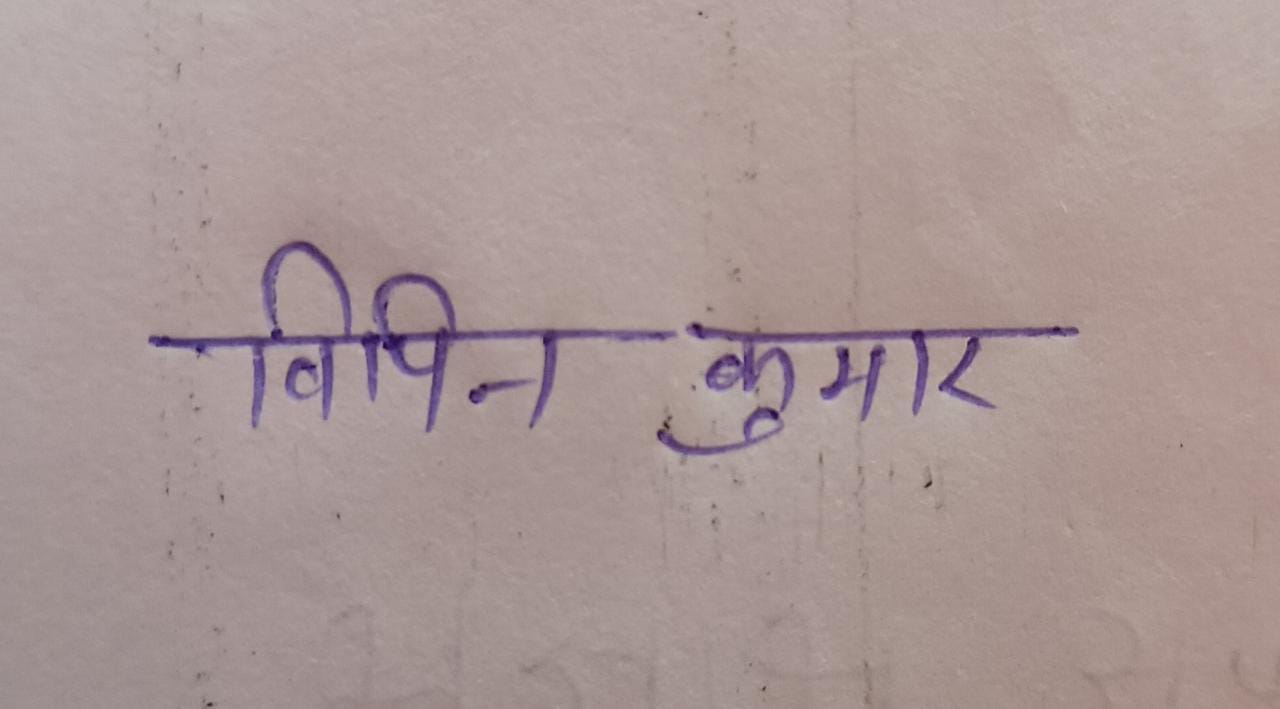 विपिन कुमार